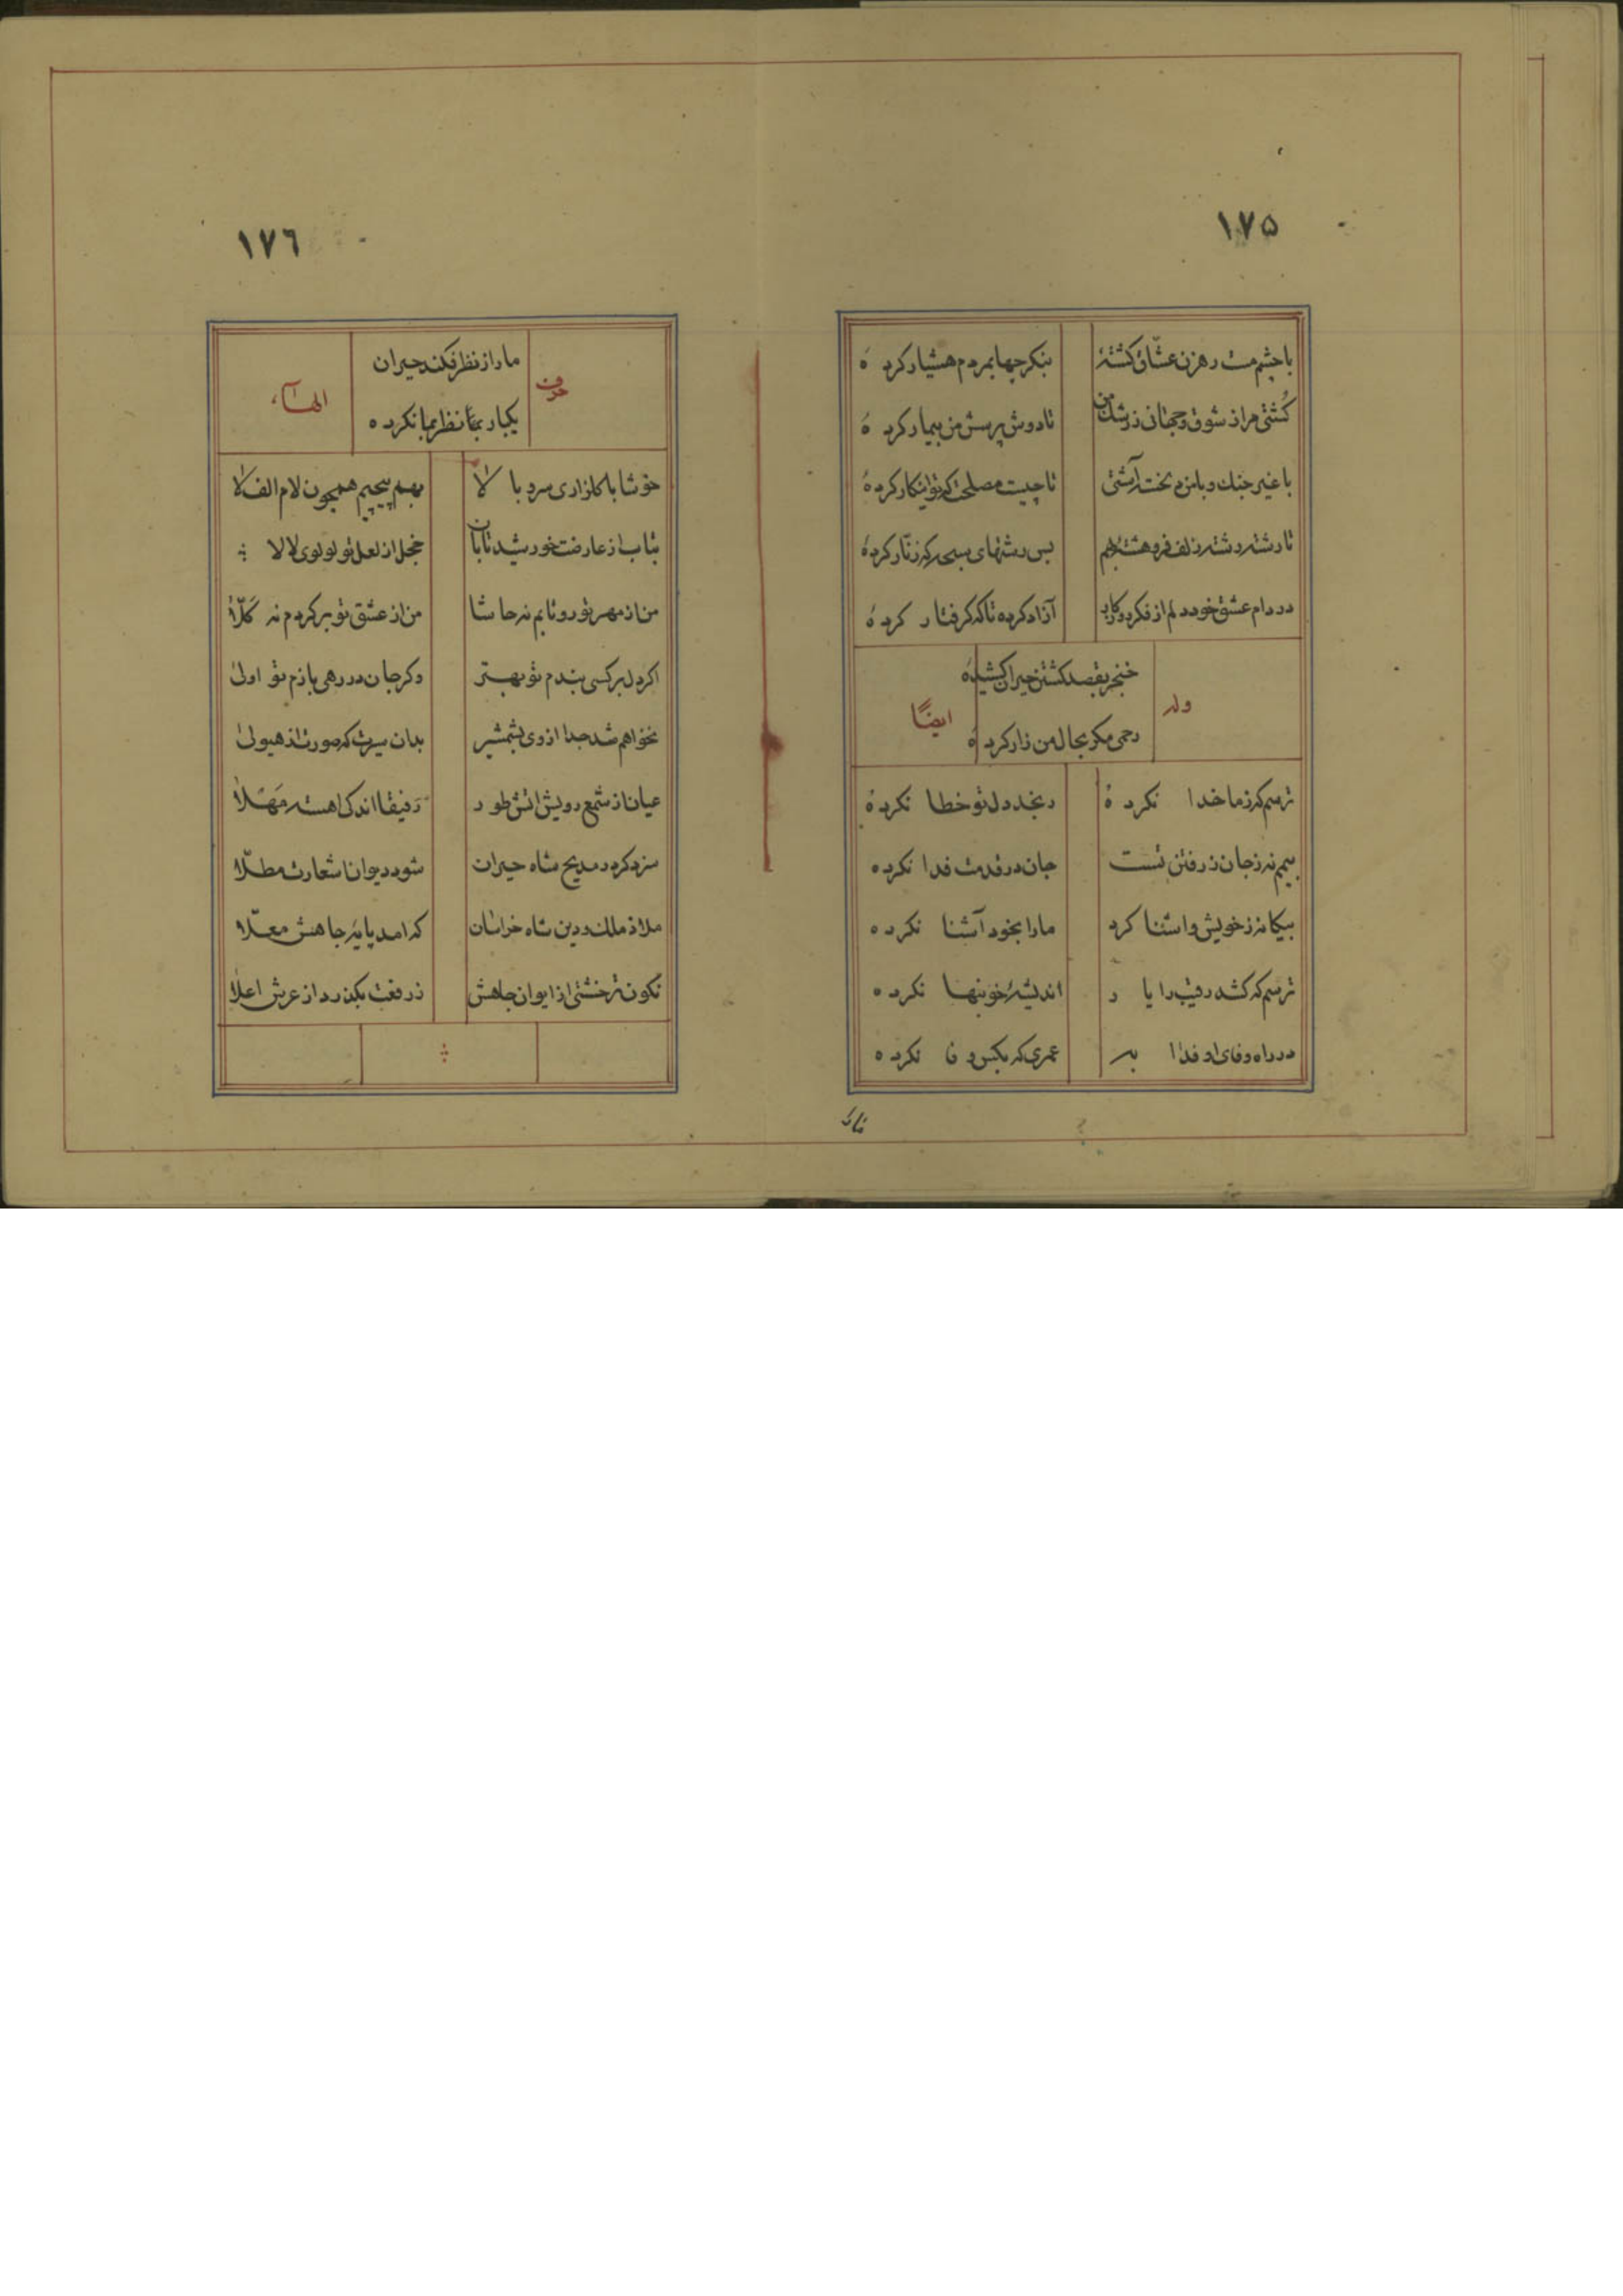 ۱۷۵
با چشم مست رهزن عشاق کشتهٔ بنکر چها بمردم هشیار کردهٔ
کُشتی مرا ز شوق و جهانی ز رشک من تا دوش پرسش من بیمار کردهٔ
با غیر جنک و با من دم سخت آشتی تا چیست مصلحت که تو اینکار کردهٔ
تا رشته رشته زلف فروهشتهٔ بهم بس رشتهای سبحه که زنّار کردهٔ
در دام عشق خود دلم از فکر روزکار آزاد کرده تا که کرفتار کردهٔ
وله
خنجر بقصد کشتن حیران کشیدهٔ
رحمی مکر بحال من زار کردهٔ
ایضًا
ترسم که ز ما خدا نکردهٔ رنجد دل تو خطا نکردهٔ
بیمم نه ز جان ز رفتن تست جان در قدمت فدا نکرده
بیکانه ز خویش و اشنا کرد مارا بخود آشنا نکرده
ترسم که کشد رقیب را یار اندیشهٔ خونبها نکرده
در راه وفای او فدا به عمری که بکس وفا نکرده
۱۷٦
حرف
مارا ز نظر فکند حیران
یکبار بما نظر بما نکرده
الهآء
خوشا با کلزاری سرو بالا بهم پیچیم همچون لام الف لا
بتاب از عارضت خورشید تابان خجل از لعل تو لولوی لالا
من از مهر تو رو تابم نه حاشا من از عشق تو برکردم نه کَلّا
اکر دل بر کسی بندم تو بهتر وکر جان در رهی بازم تو اولی
نخواهم شد جدا از وی بشمشیر بدان سیرت که صورت از هیولی
عیان از شمع رویش اتش طور رفیقا اندکی اهسته مَهْلا
سزد کر در مدیح شاه حیران شود دیوان اشعارت مطلّا
ملاذ ملک و دین شاه خراسان که امد پایهٔ جاهش معلّا
نکون تر خشتی از ایوان جاهش ز رفعت بکذرد از عرش اعلا